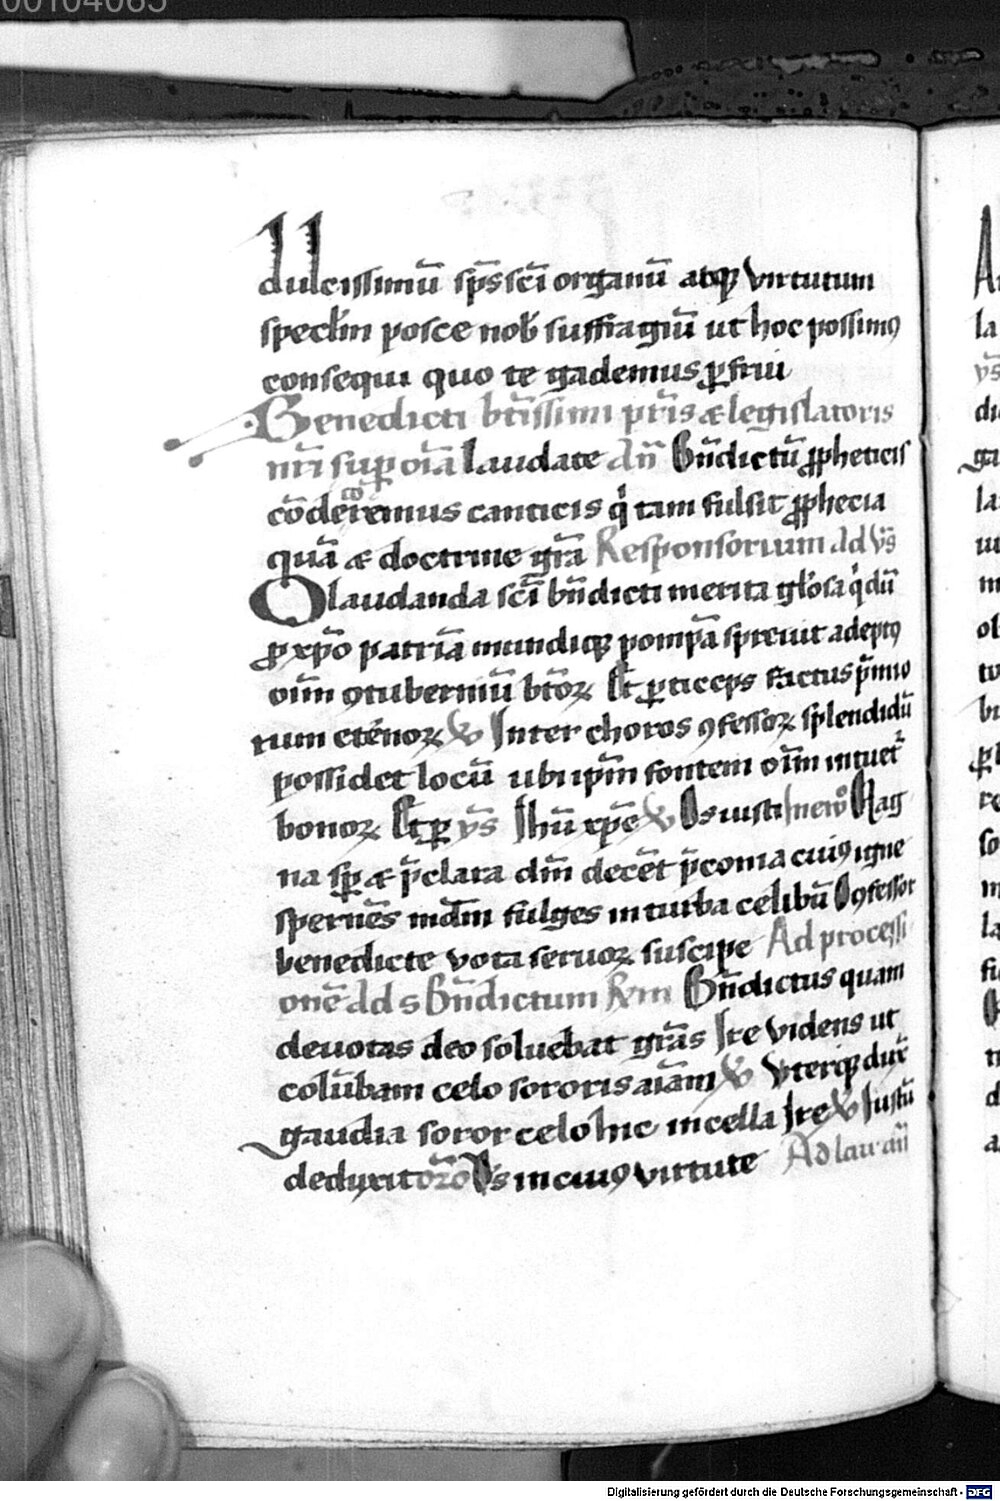 00104085
dulcissimū sp̄s sc̄i organū atqꝫ virtutum
specl̄m posce nob̄ suffragiū ut hoc possimꝰ
consequi quo te gademus ꝑfrui
Benedicti bt̄issimi pr̄is & legislatoris
nr̄i suꝑ oīa laudate dn̄ Bn̄dictū ꝓpheticis
cōdecoremus canticis q̇ tam fulsit ꝓphecia
quā & doctrine gr̄a Responsorium ad vs̄
O laudanda sc̄i bn̄dicti merita gl̓osa q̇ dū
ꝓ xp̄o patriā mundiqꝫ pompā spreuit adeptꝰ
oīm ꝯtuberniū bt̄oꝝ Et ꝑticeps factus p̄mio
rum et̓noꝝ ℣ Inter choros ꝯfessoꝝ splendidū
possidet locū ubi ip̄m fontem oīm intuet̉
bonoꝝ Et ꝑ ys̄ Ihū xp̄e ℣ Os iusti In euº Mag
na sꝑ & p̄clara dm̄ decēt p̄conia cuiꝰ igne
spernēs mūdm fulges in turba celibū O ꝯfessor
benedicte vota seruoꝝ suscipe Ad processi
onē ad s Bn̄dictum Rm Bn̄dictus quam
deuotas deo soluebat gr̄as Ite videns ut
colūbam celo sororis aīam ℣ Vterqꝫ dux̄
gaudia soror celo hic in cella Ite ℣ Iustū
deduxit or̄o Ds̄ in cuiꝰ virtute Ad laudū
Digitalisierung gefördert durch die Deutsche Forschungsgemeinschaft - DFG